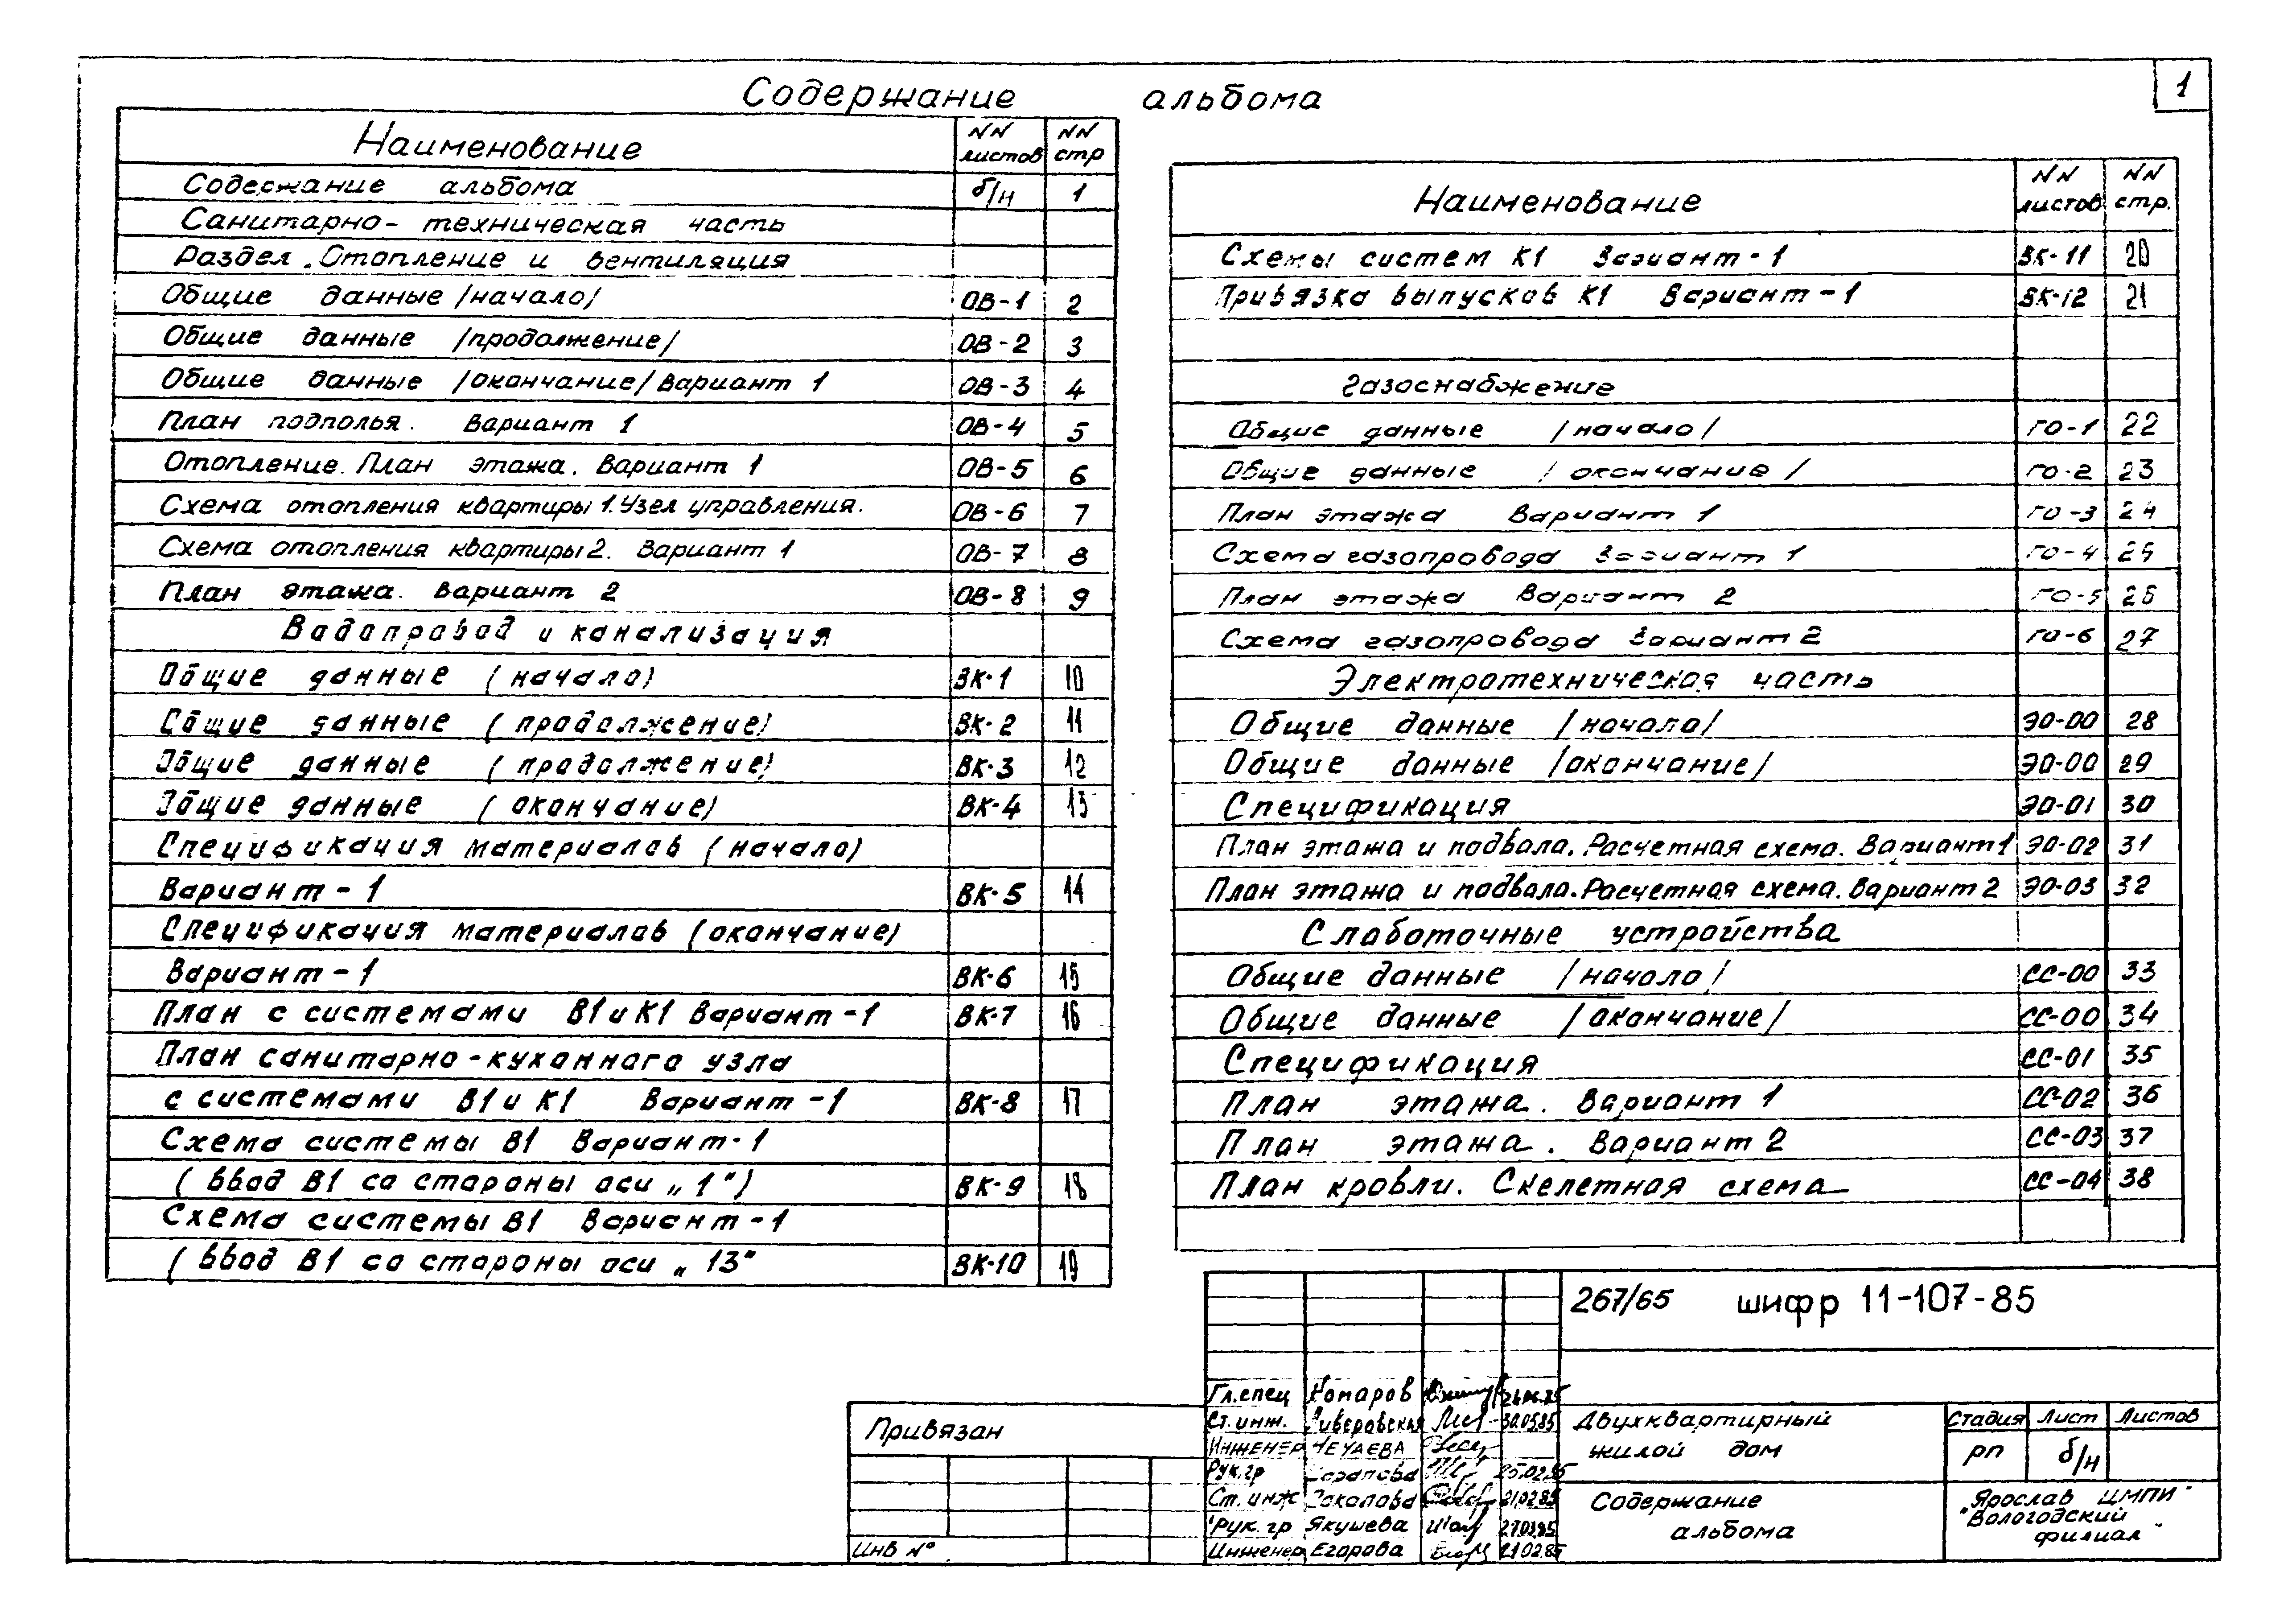 1
Содержание альбома
Наименование | NN листов | NN стр
Содержание альбома | б/н | 1
Санитарно-техническая часть
Раздел. Отопление и вентиляция
Общие данные /начало/ | ОВ-1 | 2
Общие данные /продолжение/ | ОВ-2 | 3
Общие данные /окончание/ Вариант 1 | ОВ-3 | 4
План подполья. Вариант 1 | ОВ-4 | 5
Отопление. План этажа. Вариант 1 | ОВ-5 | 6
Схема отопления квартиры 1. Узел управления. | ОВ-6 | 7
Схема отопления квартиры 2. Вариант 1 | ОВ-7 | 8
План этажа. Вариант 2 | ОВ-8 | 9
Водопровод и канализация
Общие данные (начало) | ВК-1 | 10
Общие данные (продолжение) | ВК-2 | 11
Общие данные (продолжение) | ВК-3 | 12
Общие данные (окончание) | ВК-4 | 13
Спецификация материалов (начало)
Вариант-1 | ВК-5 | 14
Спецификация материалов (окончание)
Вариант-1 | ВК-6 | 15
План с системами В1 и К1 Вариант-1 | ВК-7 | 16
План санитарно-кухонного узла
с системами В1 и К1 Вариант-1 | ВК-8 | 17
Схема системы В1 Вариант-1
(ввод В1 со стороны оси „1") | ВК-9 | 18
Схема системы В1 Вариант-1
(ввод В1 со стороны оси „13" | ВК-10 | 19
Наименование | NN листов | NN стр.
Схемы систем К1 Вариант-1 | ВК-11 | 20
Привязка выпусков К1 Вариант-1 | ВК-12 | 21
Газоснабжение
Общие данные /начало/ | ГО-1 | 22
Общие данные /окончание/ | ГО-2 | 23
План этажа Вариант 1 | ГО-3 | 24
Схема газопровода Вариант 1 | ГО-4 | 25
План этажа Вариант 2 | ГО-5 | 26
Схема газопровода Вариант 2 | ГО-6 | 27
Электротехническая часть
Общие данные /начало/ | ЭО-00 | 28
Общие данные /окончание/ | ЭО-00 | 29
Спецификация | ЭО-01 | 30
План этажа и подвала. Расчетная схема. Вариант 1 | ЭО-02 | 31
План этажа и подвала. Расчетная схема. Вариант 2 | ЭО-03 | 32
Слаботочные устройства
Общие данные /начало/ | СС-00 | 33
Общие данные /окончание/ | СС-00 | 34
Спецификация | СС-01 | 35
План этажа. Вариант 1 | СС-02 | 36
План этажа. Вариант 2 | СС-03 | 37
План кровли. Скелетная схема | СС-04 | 38
267/65 шифр 11-107-85
Привязан
Инв N°
Гл.спец Комаров
Ст.инж. 30.05.85
Инженер Нечаева
Рук.гр 25.02.85
Ст.инж Соколова 21.02.85
Рук.гр Якушева 27.03.85
Инженер Егорова 21.02.85
Двухквартирный
жилой дом
Стадия | Лист | Листов
рп | б/н
Содержание
альбома
"Ярослав ЦМПИ"
"Вологодский
филиал"